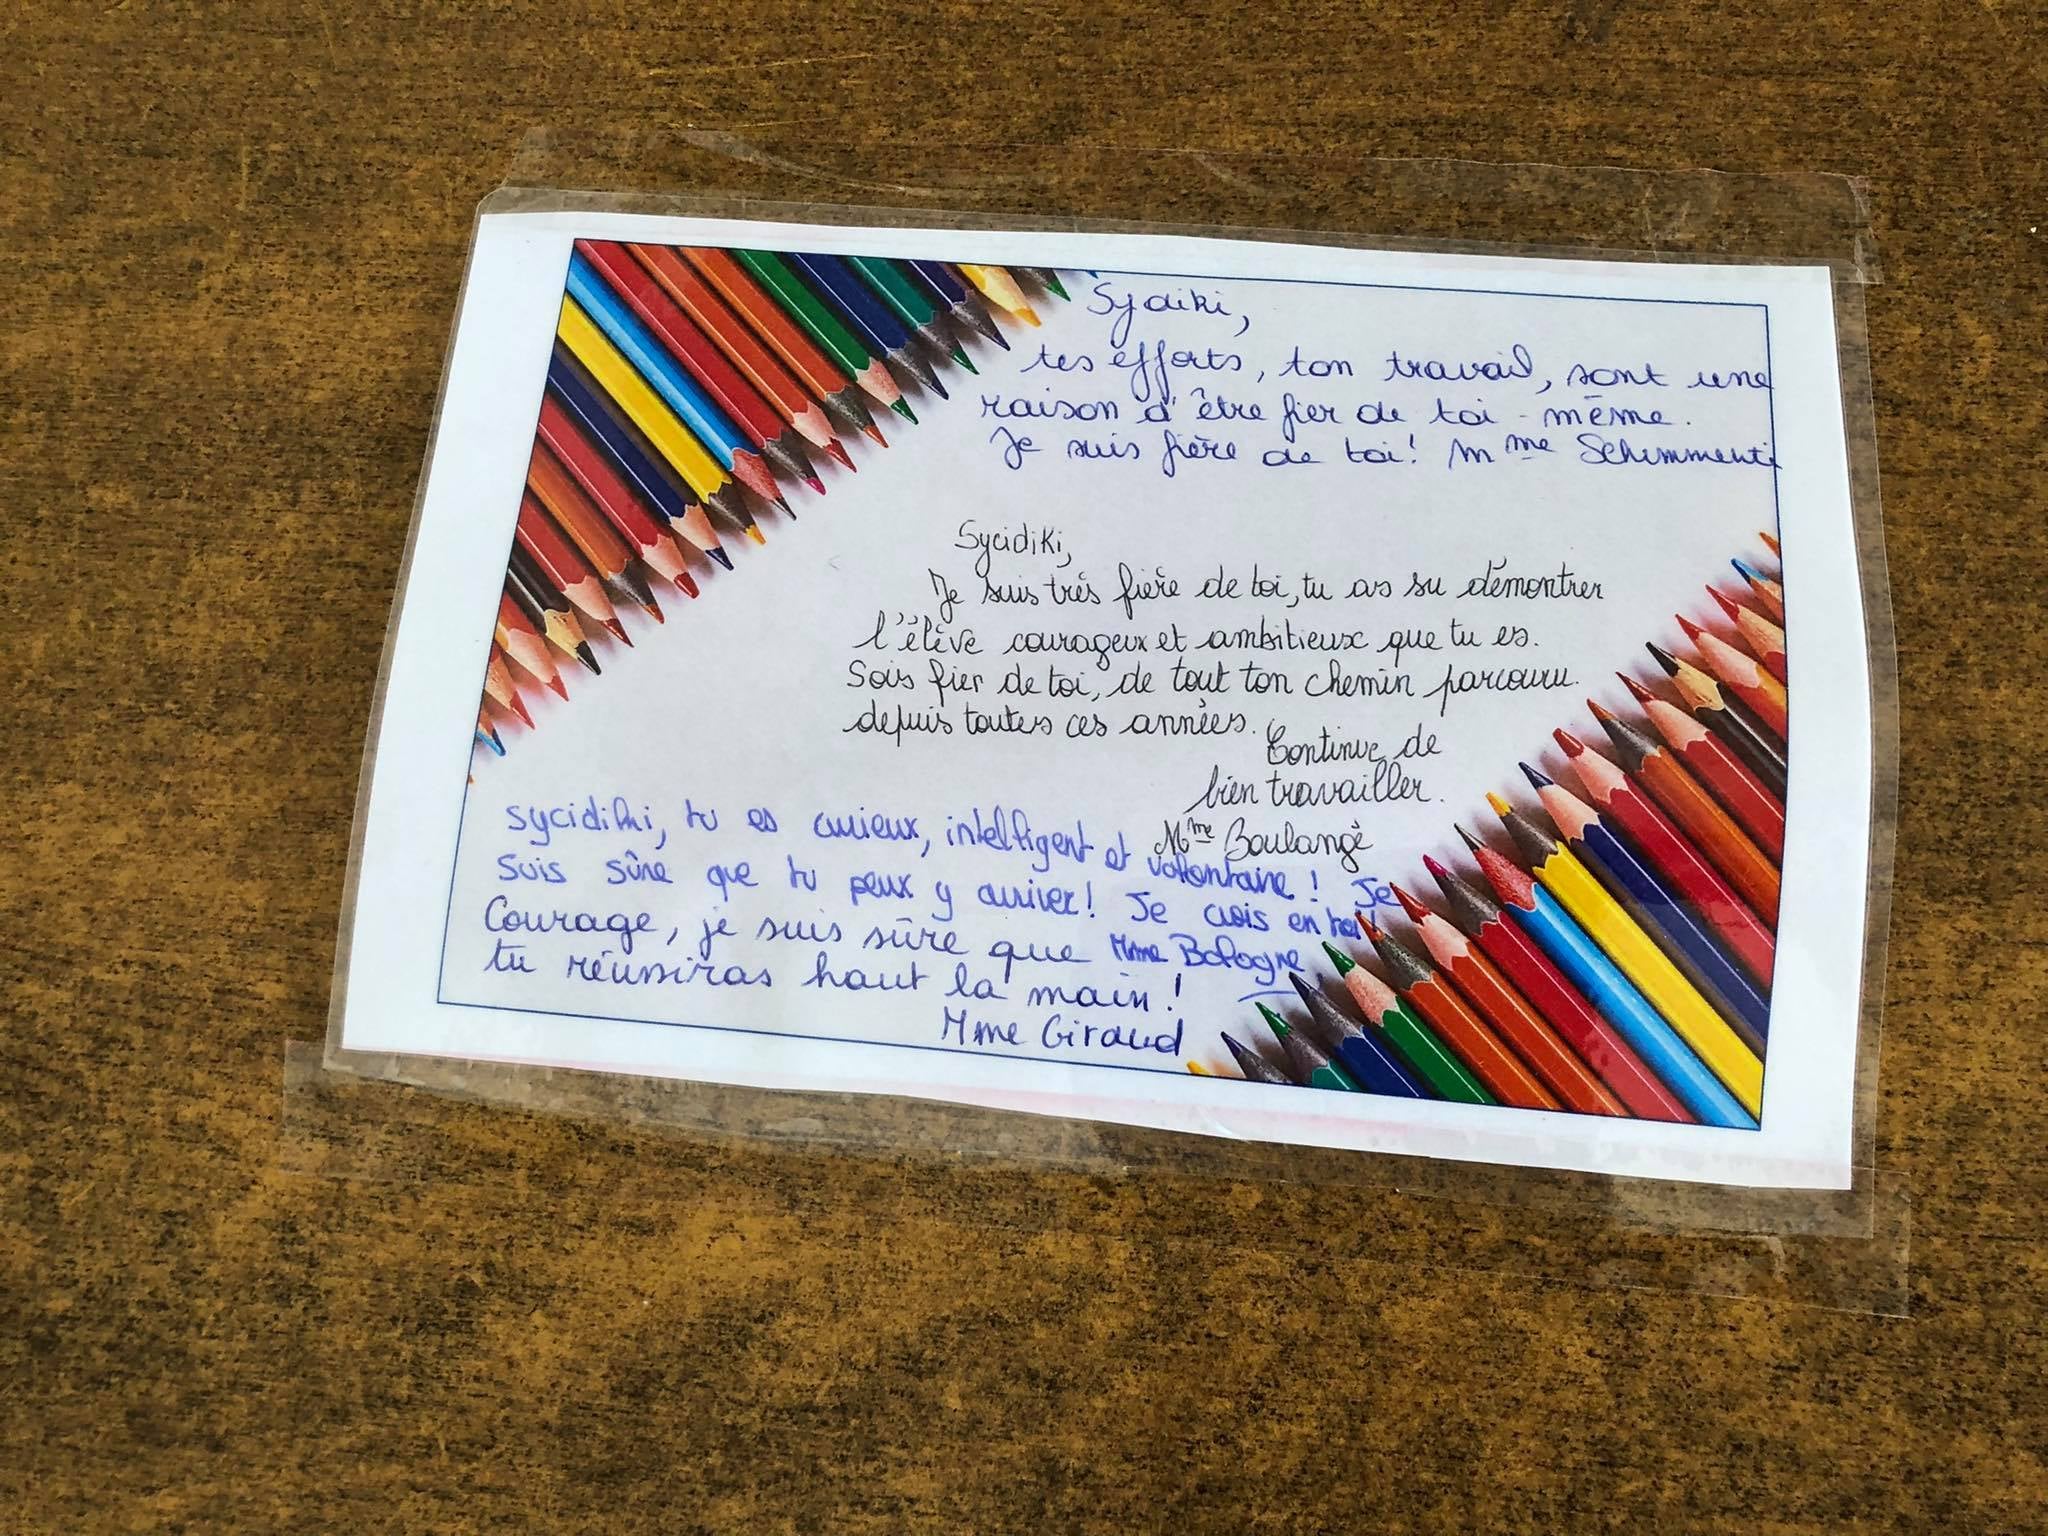 Sydiki,
tes efforts, ton travail, sont une
raison d'être fier de toi-même.
Je suis fière de toi! Mme Schimmenti
Sycidiki,
Je suis très fière de toi, tu as su démontrer
l'élève courageux et ambitieux que tu es.
Sois fier de toi, de tout ton chemin parcouru.
depuis toutes ces années.
Continue de
bien travailler.
Mme Boulangé
Sycidiki, tu es curieux, intelligent et volontaire! Je
suis sûre que tu peux y arriver! Je crois en toi!
Mme Bologne
Courage, je suis sûre que
tu réussiras haut la main!
Mme Giraud